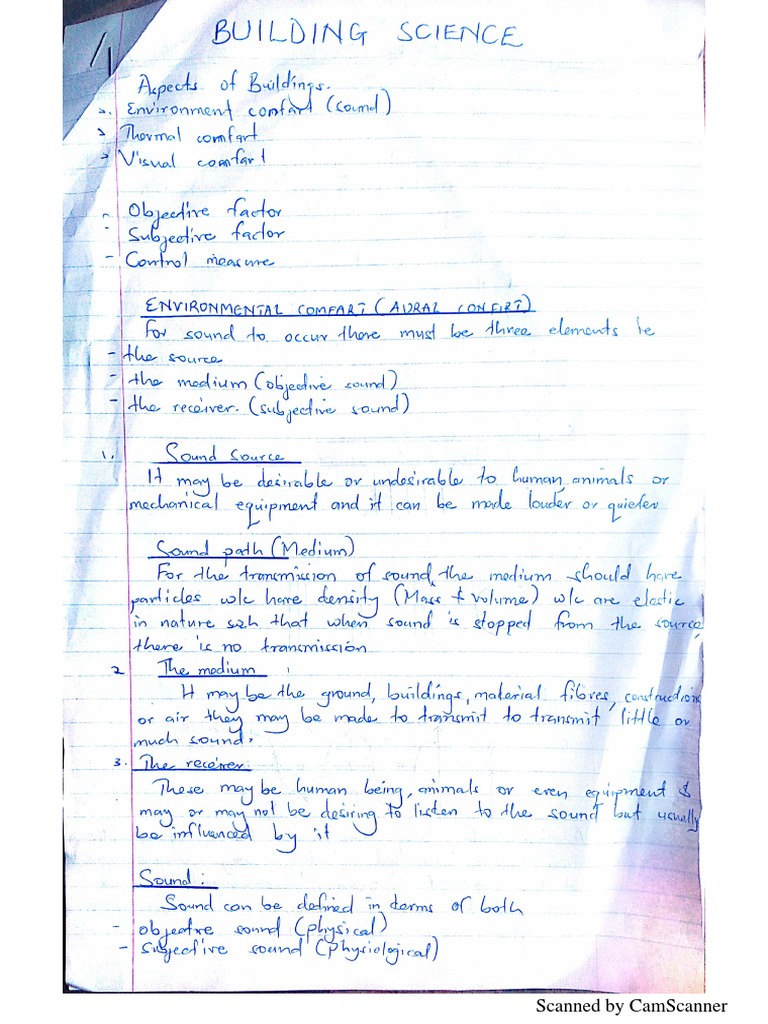 BUILDING SCIENCE
Aspects of Buildings.
Environment comfart (sound)
Thermal comfart
Visual comfart
- Objective factor
- Subjective factor
- Control measure
ENVIRONMENTAL COMFART (AURAL CONFIRT)
For sound to occur there must be three elements ie
- the source
- the medium (objective sound)
- the receiver. (subjective sound)
1. Sound source
It may be desirable or undesirable to human, animals or
mechanical equipment and it can be made louder or quieter
Sound path (Medium)
For the transmission of sound, the medium should have
particles w/c have density (Mass & volume) w/c are elastic
in nature such that when sound is stopped from the source,
there is no transmission
2 The medium
It may be the ground, buildings, material fibres, constructions
or air they may be made to transmit to transmit little or
much sound.
3. The receiver
These may be human being, animals or even equipment &
may or may not be desiring to listen to the sound but usually
be influenced by it
Sound:
Sound can be defined in terms of both
- objective sound (physical)
- subjective sound (physiological)
Scanned by CamScanner